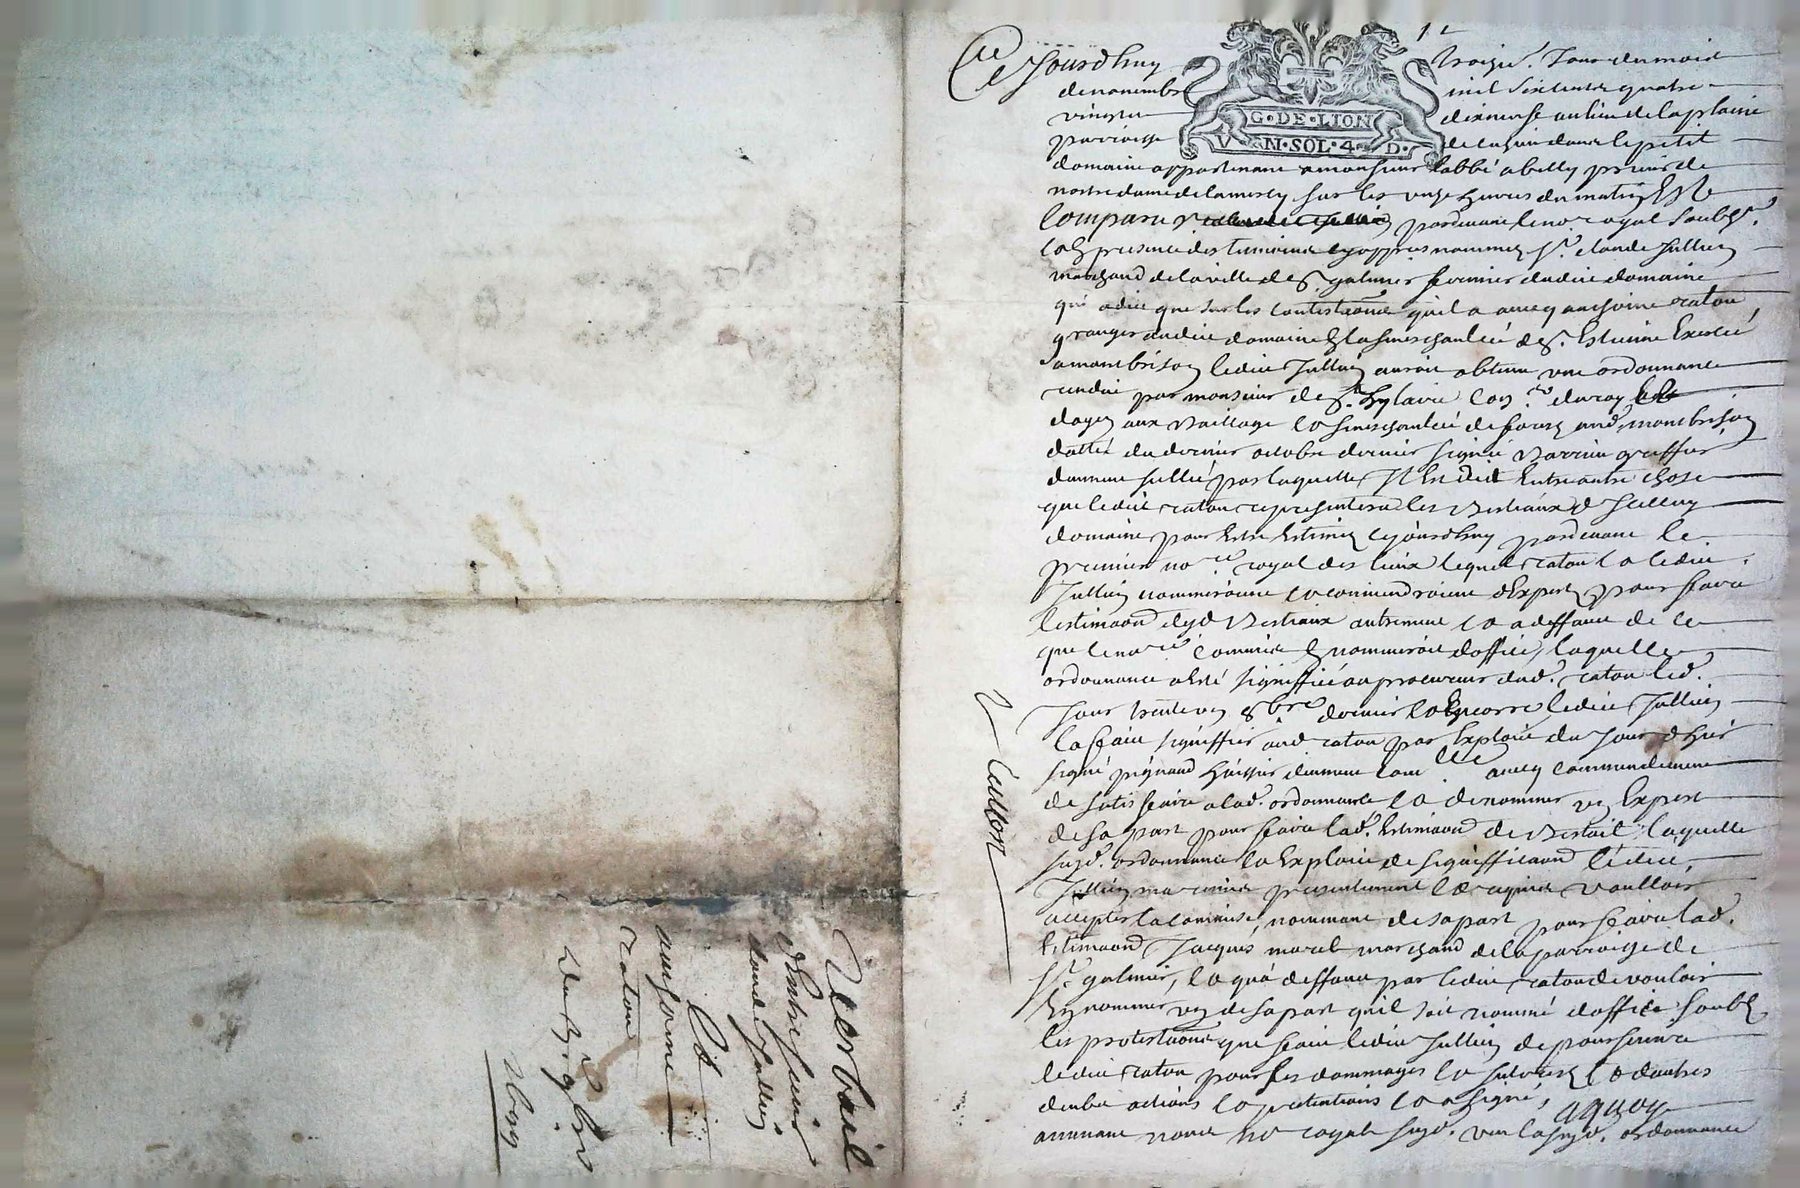 Ce Jourdhuy troizie. Jour du mois
de novembre mil six cents quatre
vingt dixneufe au lieu de la plaine
parroisse de dans le petit
G·DE·LION
V N·SOL·4·D·
domaine appartenant a monsieur labbé prieur de
nostre dame de sur les unze heures du matin Est
Comparu pardevant le nore royal soubsr.
Et presence des temoins cy appres nommes sr. claude Jullien
marchand de la ville de St. galmier fermier dudit domaine
qui a dit que sur les contestaons quil a avecq anthoine raton
granger dudit domaine En la seneschaulcée de St. Estienne Exercée
a montbrison ledit Jullien auroit obtenu une ordonnance
rendue par monsieur de St. hylaire con.er du roy
doyen aux bailliage Et seneschaulcée de fourez aud. montbrison
datté du dernier octobre dernier signée greffier
dument sellée par laquelle Il Est dit Entre autre chose
que ledit raton representera les bestiaux
domaine pour Estre Estimés cejourdhuy pardevant le
premier nore. royal des lieux lequel raton Et ledit
Jullien nommeroient Et conviendroient dExperts pour faire
lestimaon desd bestiaux autrement Et a deffaut de ce
que le nore commis En nommeroit doffice, laquelle
ordonnance a Esté signiffiée au procureur dud. raton led.
Jour trente un 8bre dernier Et Encorre ledit Jullien
la fait signiffier aud raton par Exploit du Jour dhier
signé huissier dument avecq commandement
de satisfaire a lad. ordonnance Et de nommer un Expert
de sa part pour faire lad. Estimaon de bestail laquelle
susd. ordonnance Et Exploit de signifficaon ledit
Jullien ma remis presentement Et requis voulloir
accepter la commise, nommant de sa part pour faire lad.
Estimaon Jacques marchand de la parroisse de
St. galmier, Et qua deffaut par ledit raton de vouloir
En nommer un de sa part quil soit nommé doffice soubs
les protestaons que fait ledit Jullien de poursuivre
ledit raton pour ses dommages Et Et dautres
actions Et pretentions Et a signé,
nore royal susd. veu la susd. ordonnance
Jullien
Verbail
dEntre sieur
claude Jullien
Et
anthoine
raton
Du 3e 9bre
1699